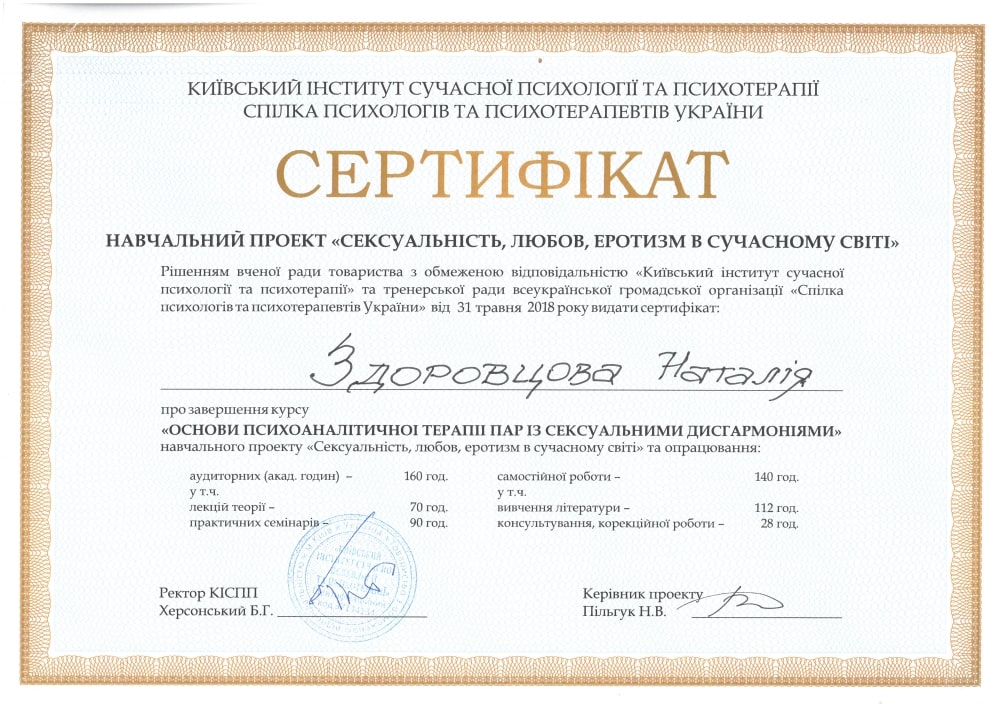 КИЇВСЬКИЙ ІНСТИТУТ СУЧАСНОЇ ПСИХОЛОГІЇ ТА ПСИХОТЕРАПІЇ
СПІЛКА ПСИХОЛОГІВ ТА ПСИХОТЕРАПЕВТІВ УКРАЇНИ
СЕРТИФІКАТ
НАВЧАЛЬНИЙ ПРОЕКТ «СЕКСУАЛЬНІСТЬ, ЛЮБОВ, ЕРОТИЗМ В СУЧАСНОМУ СВІТІ»
Рішенням вченої ради товариства з обмеженою відповідальністю «Київський інститут сучасної
психології та психотерапії» та тренерської ради всеукраїнської громадської організації «Спілка
психологів та психотерапевтів України» від 31 травня 2018 року видати сертифікат:
Здоровцова Наталія
про завершення курсу
«ОСНОВИ ПСИХОАНАЛІТИЧНОЇ ТЕРАПІЇ ПАР ІЗ СЕКСУАЛЬНИМИ ДИСГАРМОНІЯМИ»
навчального проекту «Сексуальність, любов, еротизм в сучасному світі» та опрацювання:
аудиторних (акад. годин) – 160 год. самостійної роботи – 140 год.
у т.ч. у т.ч.
лекцій теорії – 70 год. вивчення літератури – 112 год.
практичних семінарів – 90 год. консультування, корекційної роботи – 28 год.
Ректор КІСПП Керівник проекту
Херсонський Б.Г. Пільгук Н.В.